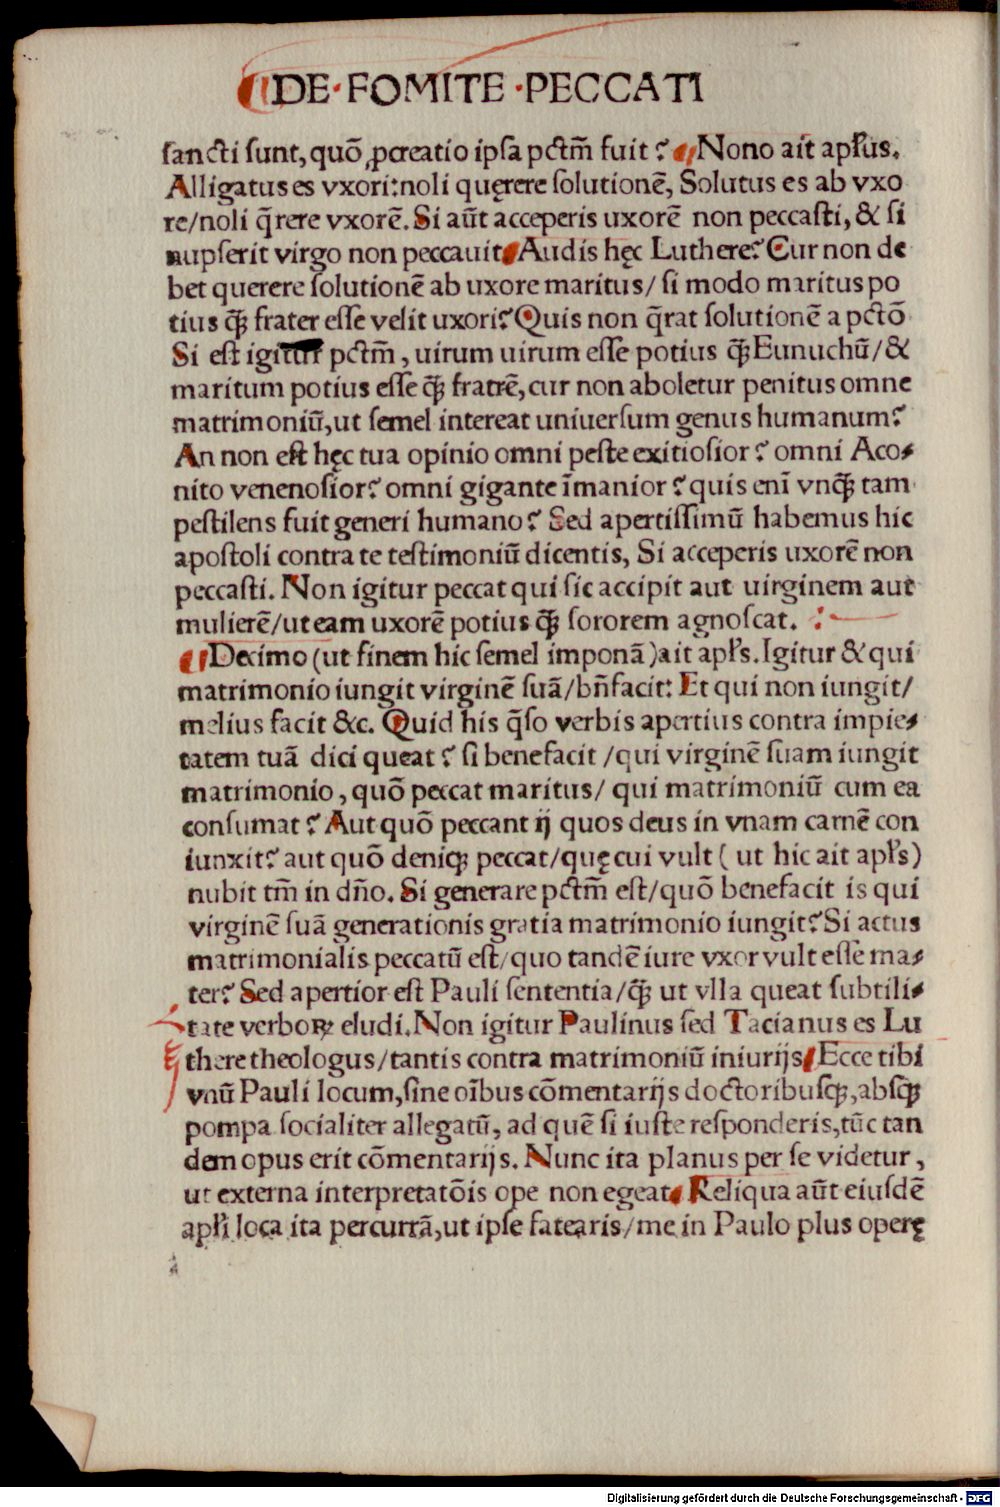 DE·FOMITE·PECCATI
sancti sunt, quō ꝓcreatio ipsa pctm̄ fuit? Nono ait apl̄us.
Alligatus es vxori: noli quęrere solutionē, Solutus es ab vxo
re/noli q̄rere vxorē. Si aūt acceperis uxorē non peccasti, & si
nupserit virgo non peccauit Audis hęc Luthere? Cur non de
bet querere solutionē ab uxore maritus/ si modo maritus po
tius q̄ꝫ frater esse velit uxori? Quis non q̄rat solutionē a pctō
Si est igitur pctm̄, uirum uirum esse potius q̄ꝫ Eunuchū/&
maritum potius esse q̄ꝫ fratrē, cur non aboletur penitus omne
matrimoniū, ut semel intereat uniuersum genus humanum?
An non est hęc tua opinio omni peste exitiosior? omni Aco-
nito venenosior? omni gigante īmanior? quis enī vnq̄ꝫ tam
pestilens fuit generi humano? Sed apertissimū habemus hic
apostoli contra te testimoniū dicentis, Si acceperis uxorē non
peccasti. Non igitur peccat qui sic accipit aut uirginem aut
mulierē/ut eam uxorē potius q̄ꝫ sororem agnoscat.
Decimo (ut finem hic semel imponā) ait apl̄s. Igitur & qui
matrimonio iungit virginē suā/bn̄facit: Et qui non iungit/
melius facit &c. Quid his q̄so verbis apertius contra impie-
tatem tuā dici queat? si benefacit /qui virginē suam iungit
matrimonio, quō peccat maritus/ qui matrimoniū cum ea
consumat? Aut quō peccant ij quos deus in vnam carnē con
iunxit? aut quō deniqꝫ peccat/quę cui vult ( ut hic ait apl̄s)
nubit tm̄ in dn̄o. Si generare pctm̄ est/quō benefacit is qui
virginē suā generationis gratia matrimonio iungit? Si actus
matrimonialis peccatū est/quo tandē iure vxor vult esse ma-
ter? Sed apertior est Pauli sententia/q̄ꝫ ut vlla queat subtili-
tate verboꝝ eludi. Non igitur Paulinus sed Tacianus es Lu
there theologus/tantis contra matrimoniū iniurijs Ecce tibi
vnū Pauli locum, sine oībus cōmentarijs doctoribusqꝫ, absqꝫ
pompa socialiter allegatū, ad quē si iuste responderis, tūc tan
dem opus erit cōmentarijs. Nunc ita planus per se videtur,
ut externa interpretatōis ope non egeat Reliqua aūt eiusdē
apl̄i loca ita percurrā, ut ipse fatearis/me in Paulo plus operę
Digitalisierung gefördert durch die Deutsche Forschungsgemeinschaft - DFG